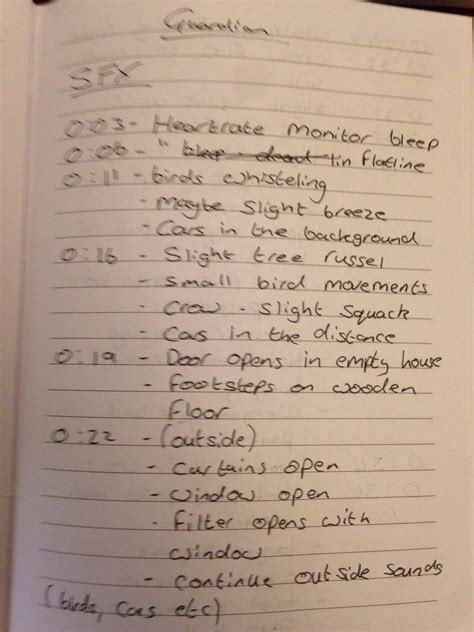 Guardian
SFX
0:03 - Heartrate monitor bleep
0:06 - " bleep dead tin flatline
0:11 - birds whisteling
- Maybe slight breeze
- Cars in the background
0:16 - Slight tree russel
- small bird movements
- Crow - slight squack
- Cars in the distance
0:19 - Door opens in empty house
- footsteps on wooden
floor
0:22 - (outside)
- Curtains open
- window open
- filter opens with
window
- continue outside sounds
(birds, cars etc)